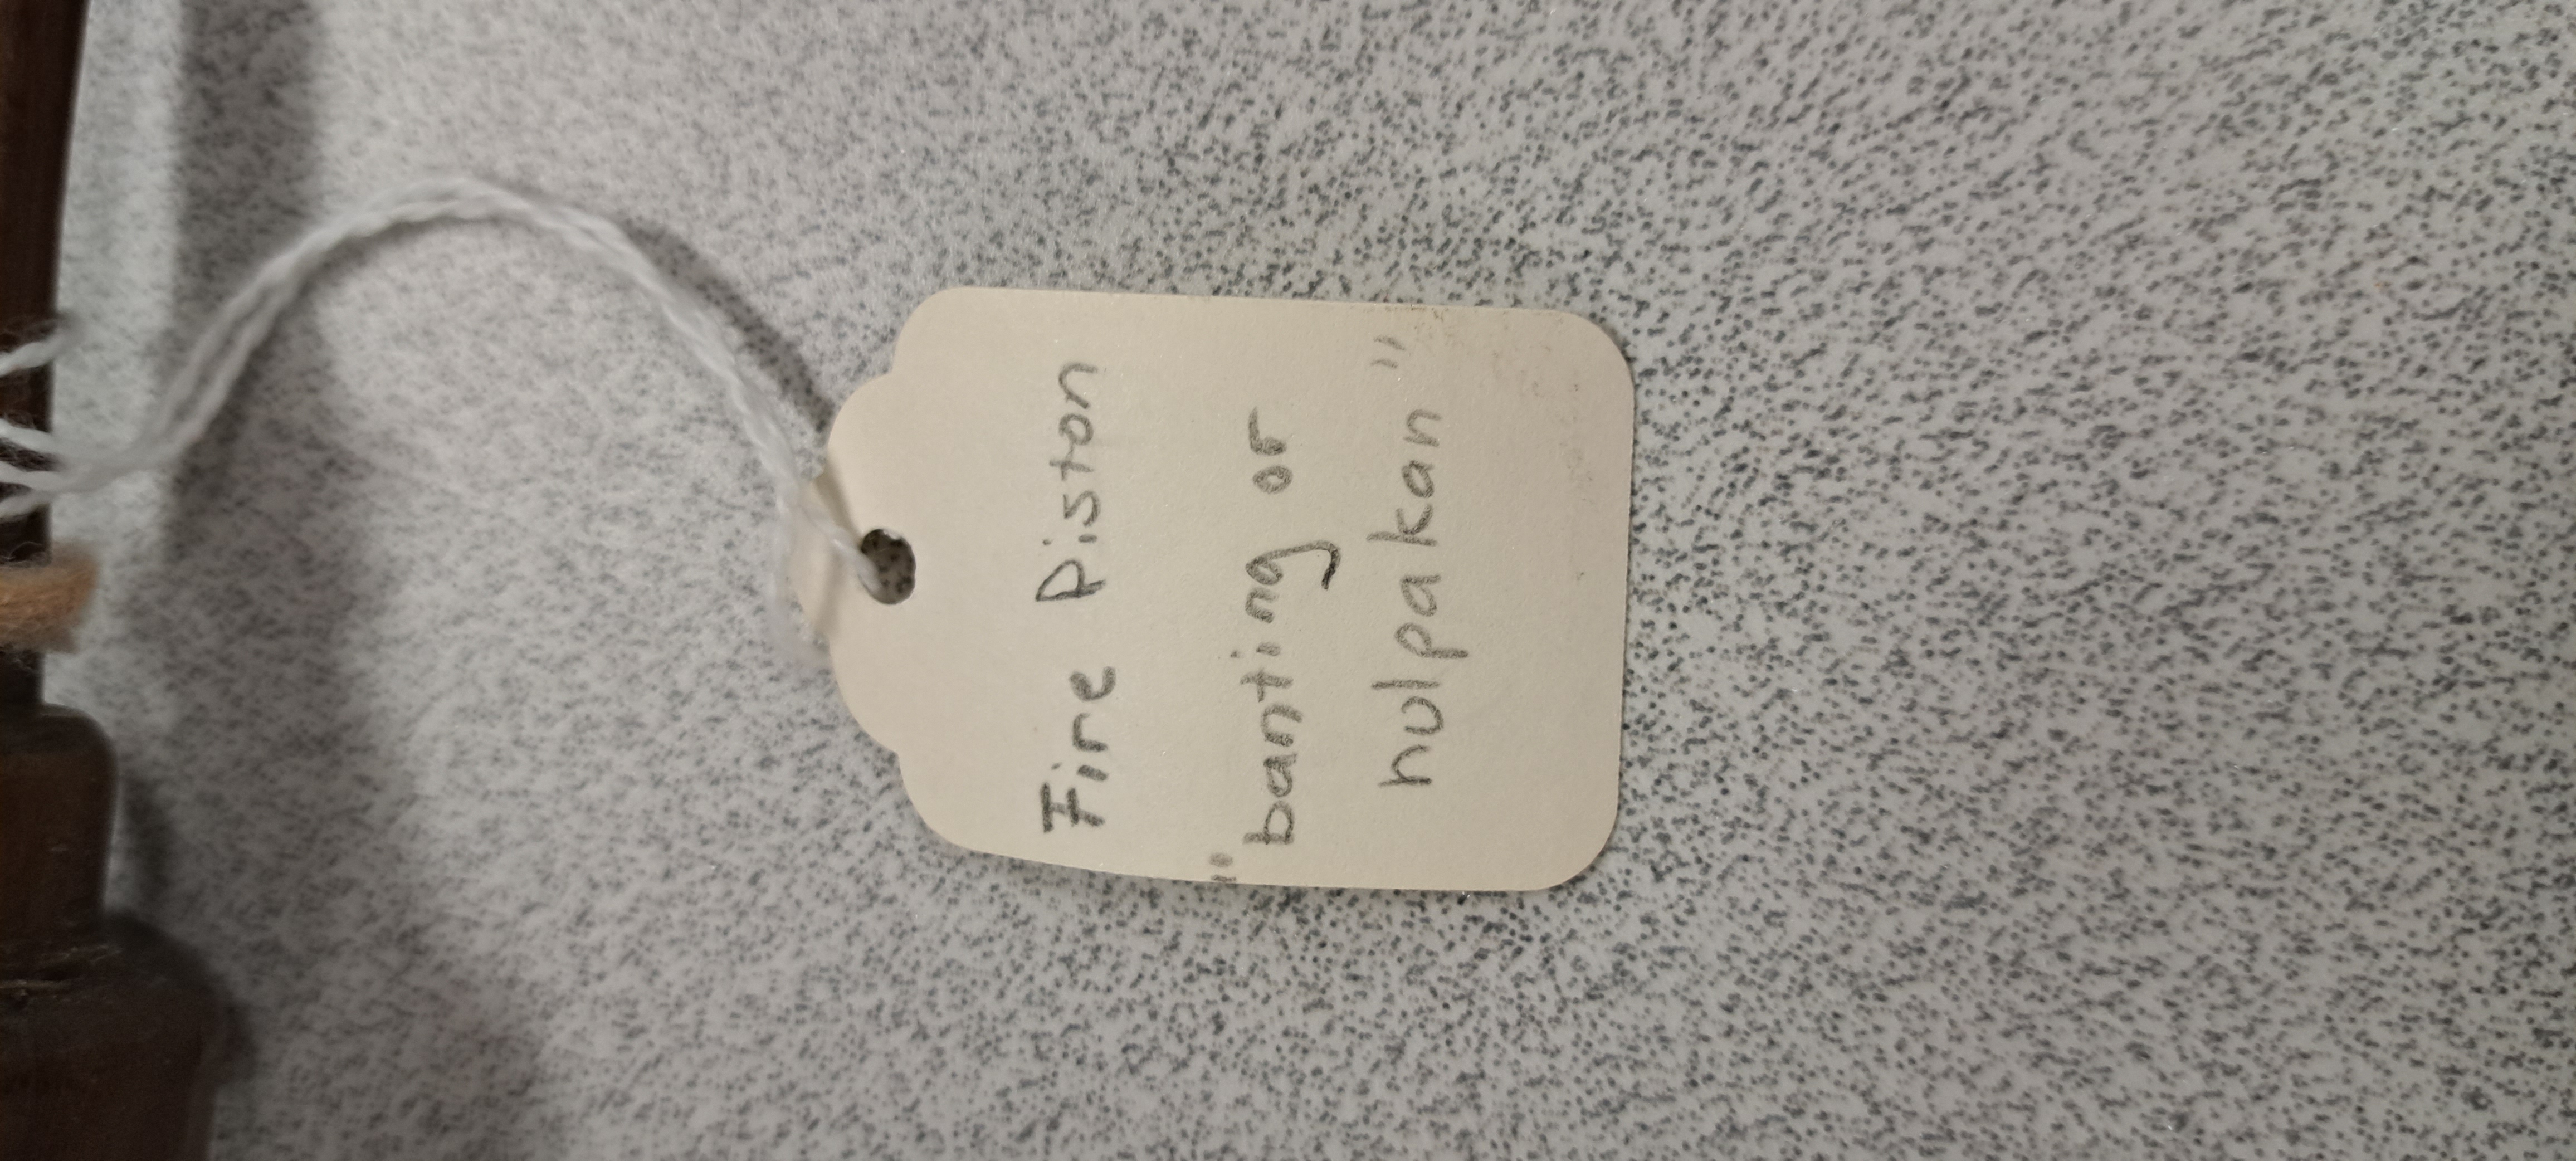 Fire Piston
"banting or
hulpakan"